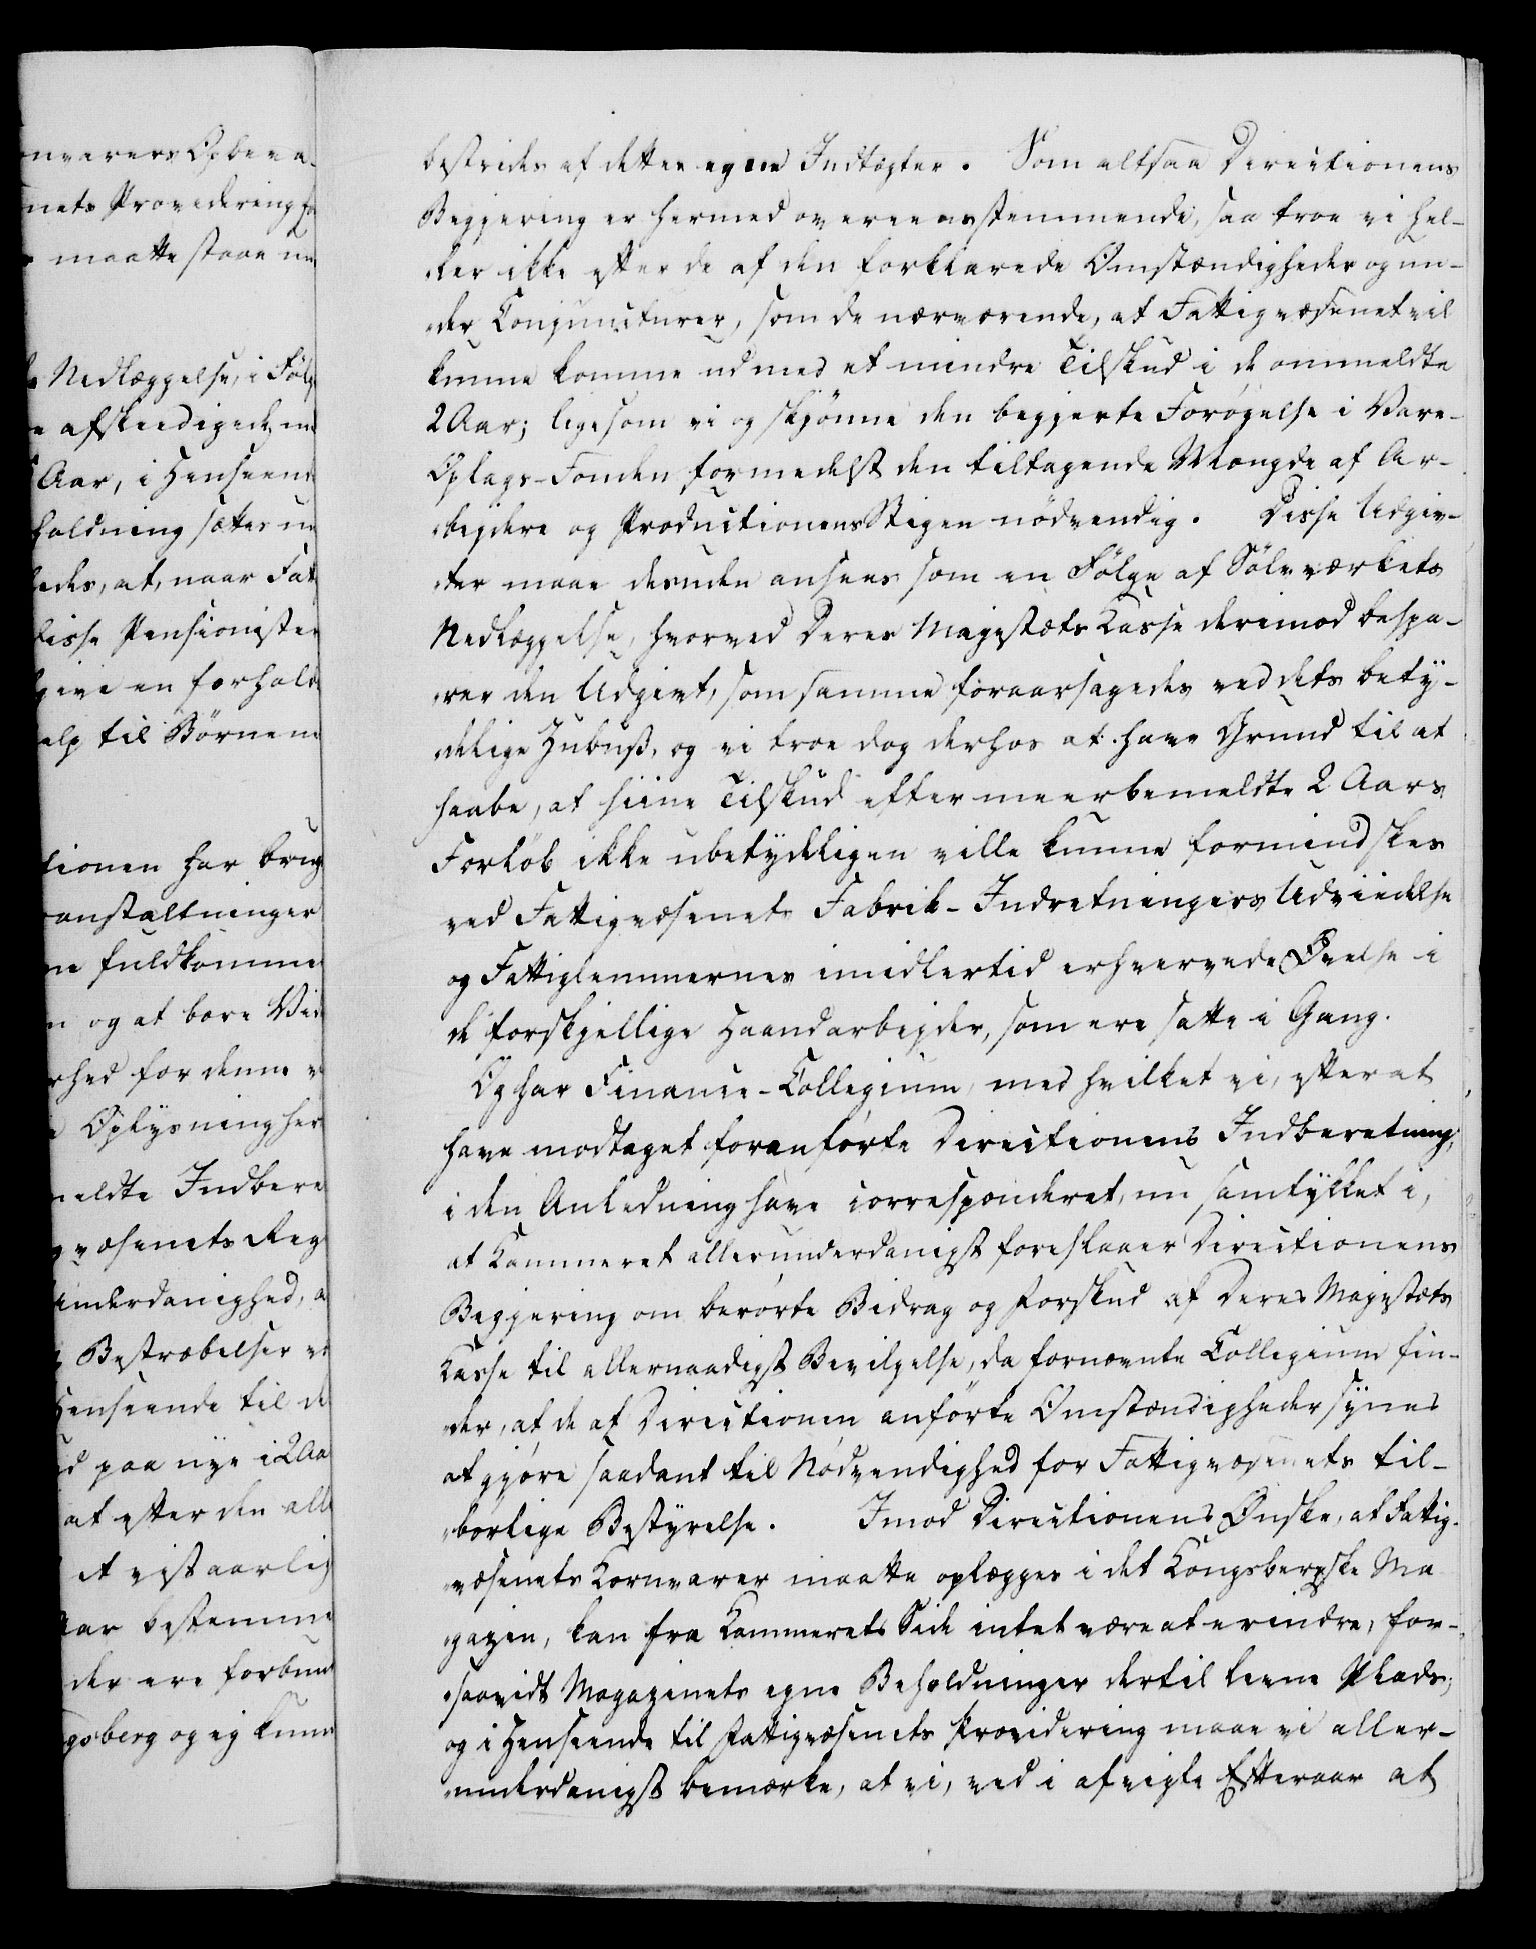 nvarers Opbeva-
nets Provedering fo
maatte staae un
Nedlæggelse, i Følg
e afskeedigede, un
Aar, i Henseend
holdning sættes un
ledes, at, naar Fat
disse Pensionister
give en forhold
alp til Børnene
tionen har brug
ranstaltninger
ne fuldkomme
n og at bære Vid
rhed for denne v
e Oplysning her
meldte Indbere
gvæsenets Reg
Underdanighed, a
Bestræbelser v
Henseende til d
id paa nye i 2 Aa
at efter den all
et vist aarlig
Aar bestemme
der ere forbund
gsberg og ej kunn
bestrides af dettes egne Indtægter. Som altsaa Directionens
Begjering er hermed overeensstemmende, saa troe vi hel-
der ikke efter de af den forklarede Omstændigheder og un-
der Conjuncturer, som de nærværende, at Fattigvæsenet vil
kunne komme ud med et mindre Tilskud i de ommeldte
2 Aar; ligesom vi og skjønne den begjerte Forøgelse i Vare-
Oplags-Fonden formedelst den tiltagende Mængde af Ar-
bejdere og Productionens Stigen nødvendig. Disse Udgiv-
ter maae desuden ansees som en Følge af Sølvværkets
Nedlæggelse, hvorved Deres Majestæts Kasse derimod bespa-
rer den Udgivt, som samme foraarsagedes ved dets bety-
delige Zubuß, og vi troe dog derhos at have Grund til at
haabe, at hiine Tilskud efter meerbemeldte 2 Aars
Forløb ikke ubetydeligen ville kunne formindskes
ved Fattigvæsenets Fabrik-Indretningers Udviidelse
og Fattiglemmernes imidlertid erhvervede Øvelse i
de forskjellige Haandarbejder, som ere satte i Gang.
Og har Finance-Collegium, med hvilket vi, efter at
have modtaget foranførte Directionens Indberetning,
i den Anledning have correspønderet, nu samtykket i,
at Kammeret allerunderdanigst foreslaaer Directionens
Begjering om berørte Bidrag og Forskud af Deres Majestæts
Kasse til allernaadigst Bevilgelse, da fornævnte Collegium fin-
der, at de af Directionen anførte Omstændigheder synes
at gjøre saadant til Nødvendighed for Fattigvæsenets til-
børlige Bestyrelse. Imod Directionens Ønske, at Fattig-
væsenets Kornvarer maatte oplægges i det Kongsbergske Ma
gazin, kan fra Kammerets Side intet være at erindre, for-
saavidt Magazinets egne Beholdninger dertil levne Plads;
og i Henseende til Fattigvæsenets Providering maae vi aller-
underdanigst bemærke, at vi, ved i afvigte Efteraar at